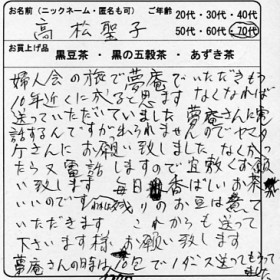 お名前(ニックネーム・匿名も可) ご年齢 20代・30代・40代
高松聖子 50代・60代・70代
お買上げ品
黒豆茶・黒の五穀茶・あずき茶
婦人会の旅で夢庵でいただきもう
10年近くに成ると思います なくなれば
送っていただいていました 夢庵さんに電
話するんですが出ませんのでヤマタ
ケさんにお願い致しました なくなっ
たら又電話しますので宜敷くお願
い致します 毎日一番はしいお茶
いいのです 残りのお豆は煮て
いただきます これからも送って
下さいます様、お願い致します
夢庵さんの時は 包で1ダース送ってもらって